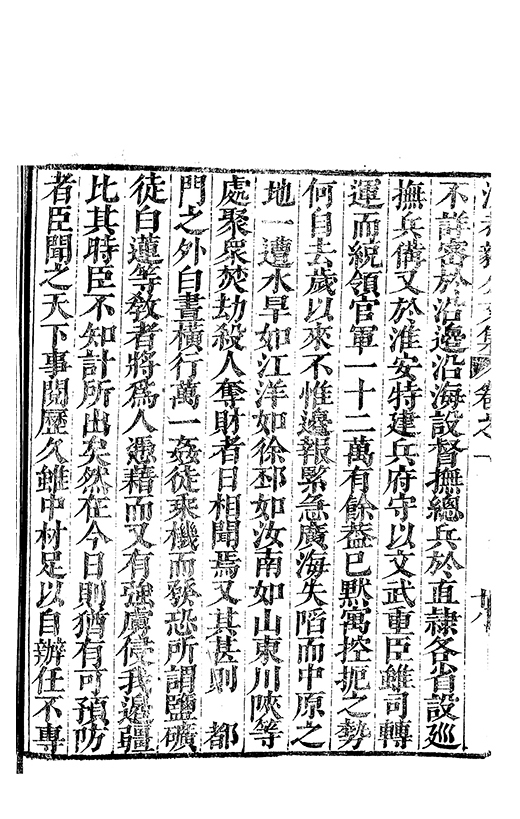 集 卷之一 
不詳審於沿邊沿海設督撫總兵於直隸各省設廵
撫兵備又於淮安特建兵府守以文武重臣雖司轉
運而統領官軍一十二萬有餘葢已默寓控扼之勢
何自去歲以來不惟邊報緊急廣海失陷而中原之
地一遭水旱如江洋如徐邳如汝南如山東川陜等
處聚衆焚劫殺人奪財者日相聞焉又其甚則 都
門之外白晝橫行萬一姦徒乘機而發恐所謂鹽礦
徒白蓮等敎者將爲人憑藉而又有強虜侵我邊疆
比其時臣不知計所出矣然在今日則猶有可預防
者臣聞之天下事閱歷久雖中材足以自辦任不專